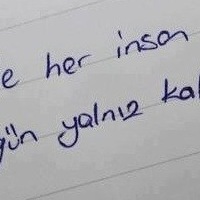 e her insan
gün yalnız kal